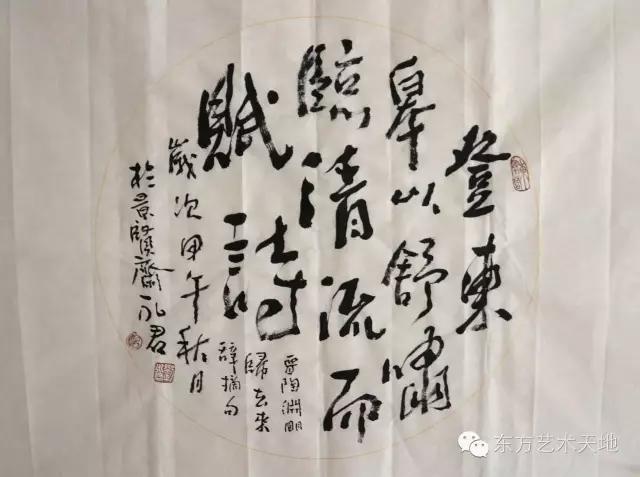 登東
皋以舒嘯
臨清流而
賦詩
陶淵明
歸去來
辭摘句
歲次甲午秋月
於景賢齋孔君
东方艺术天地